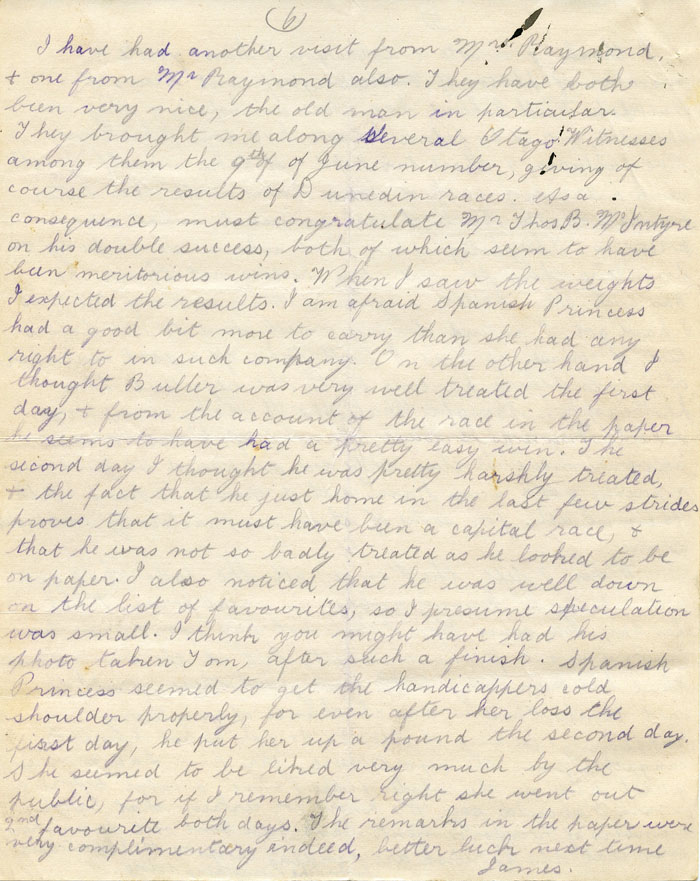 (6)
I have had another visit from Mrs. Raymond,
+ one from Mr Raymond also. They have both
been very nice, the old man in particular.
They brought me along several Otago Witnesses
among them the 9th of June number, giving of
course the results of Dunedin races. As a
consequence, must congratulate Mr Thos B. McIntyre
on his double success, both of which seem to have
been meritorious wins. When I saw the weights
I expected the results. I am afraid Spanish Princess
had a good bit more to carry than she had any
right to in such company. On the other hand I
thought Buller was very well treated the first
day, + from the account of the race in the paper
he seems to have had a pretty easy win. The
second day I thought he was pretty harshly treated,
+ the fact that he just home in the last few strides
proves that it must have been a capital race, +
that he was not so badly treated as he looked to be
on paper. I also noticed that he was well down
on the list of favourites, so I presume speculation
was small. I think you might have had his
photo taken Tom, after such a finish. Spanish
Princess seemed to get the handicappers cold
shoulder properly, for even after her loss the
first day, he put her up a pound the second day.
She seemed to be liked very much by the
public, for if I remember right she went out
2nd favourite both days. The remarks in the paper were
very complimentary indeed, better luck next time
James.